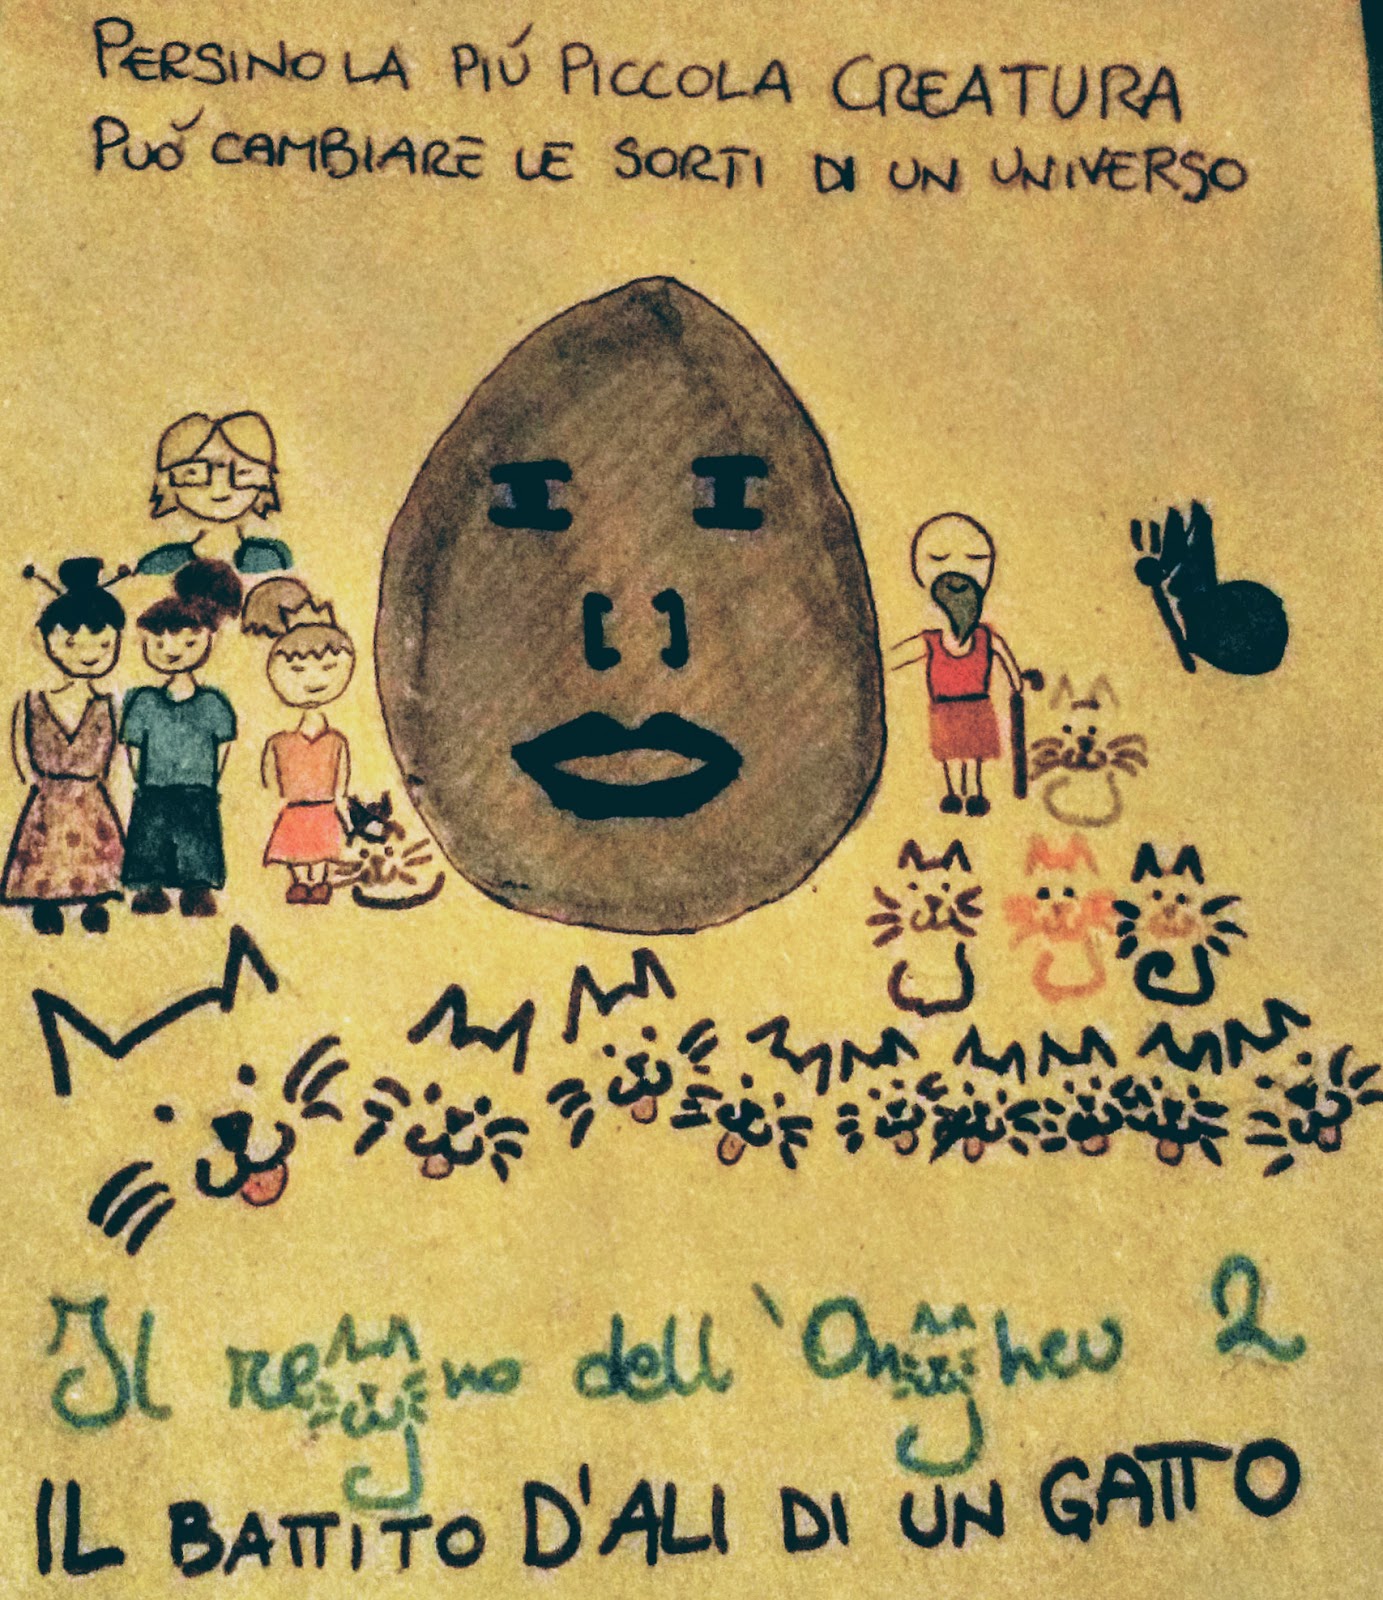 PERSINO LA PIÚ PICCOLA CREATURA
PUÓ CAMBIARE LE SORTI DI UN UNIVERSO
Il regno dell'Ongheu 2
IL BATTITO D'ALI DI UN GATTO